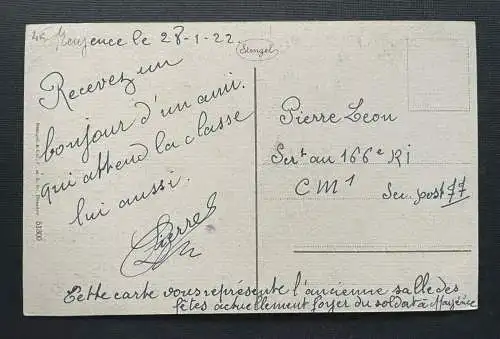 Mayence le 28-1-22.
Stengel
Recevez un
bonjour d'un ami.
qui attend la classe
lui aussi.
Pierre
Pierre Leon
Sert au 166e RI
CM1
Sec. post 77
51800
Cette carte vous représente l'ancienne salle des
fêtes actuellement foyer du soldat à Mayence